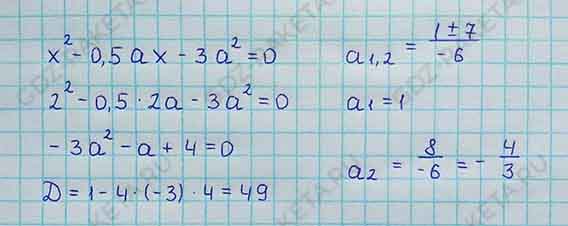 x² - 0,5ax - 3a² = 0
2² - 0,5 · 2a - 3a² = 0
-3a² - a + 4 = 0
D = 1 - 4 · (-3) · 4 = 49
a₁,₂ = (1 ± 7)/(-6)
a₁ = 1
a₂ = 8/(-6) = - 4/3